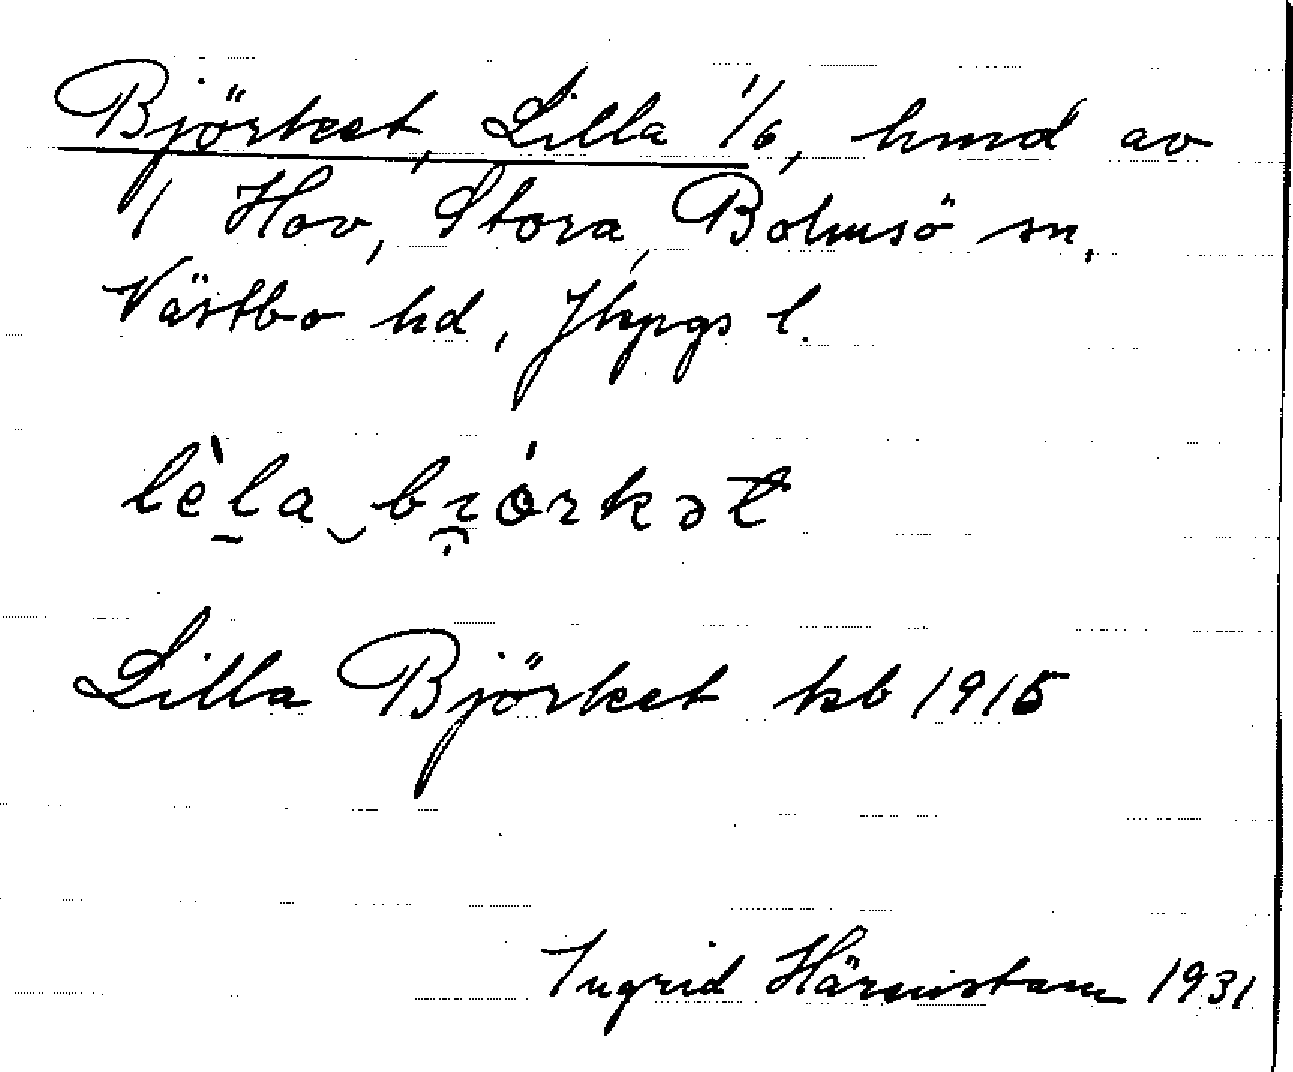 Björket, Lilla 1/6, hmd av
1 Hov, Stora, Bolmsö sn,
Västbo hd, Jkpgs l.
lèla bi̯órkət
Lilla Björket kb 1915
Ingrid Härnistam 1931